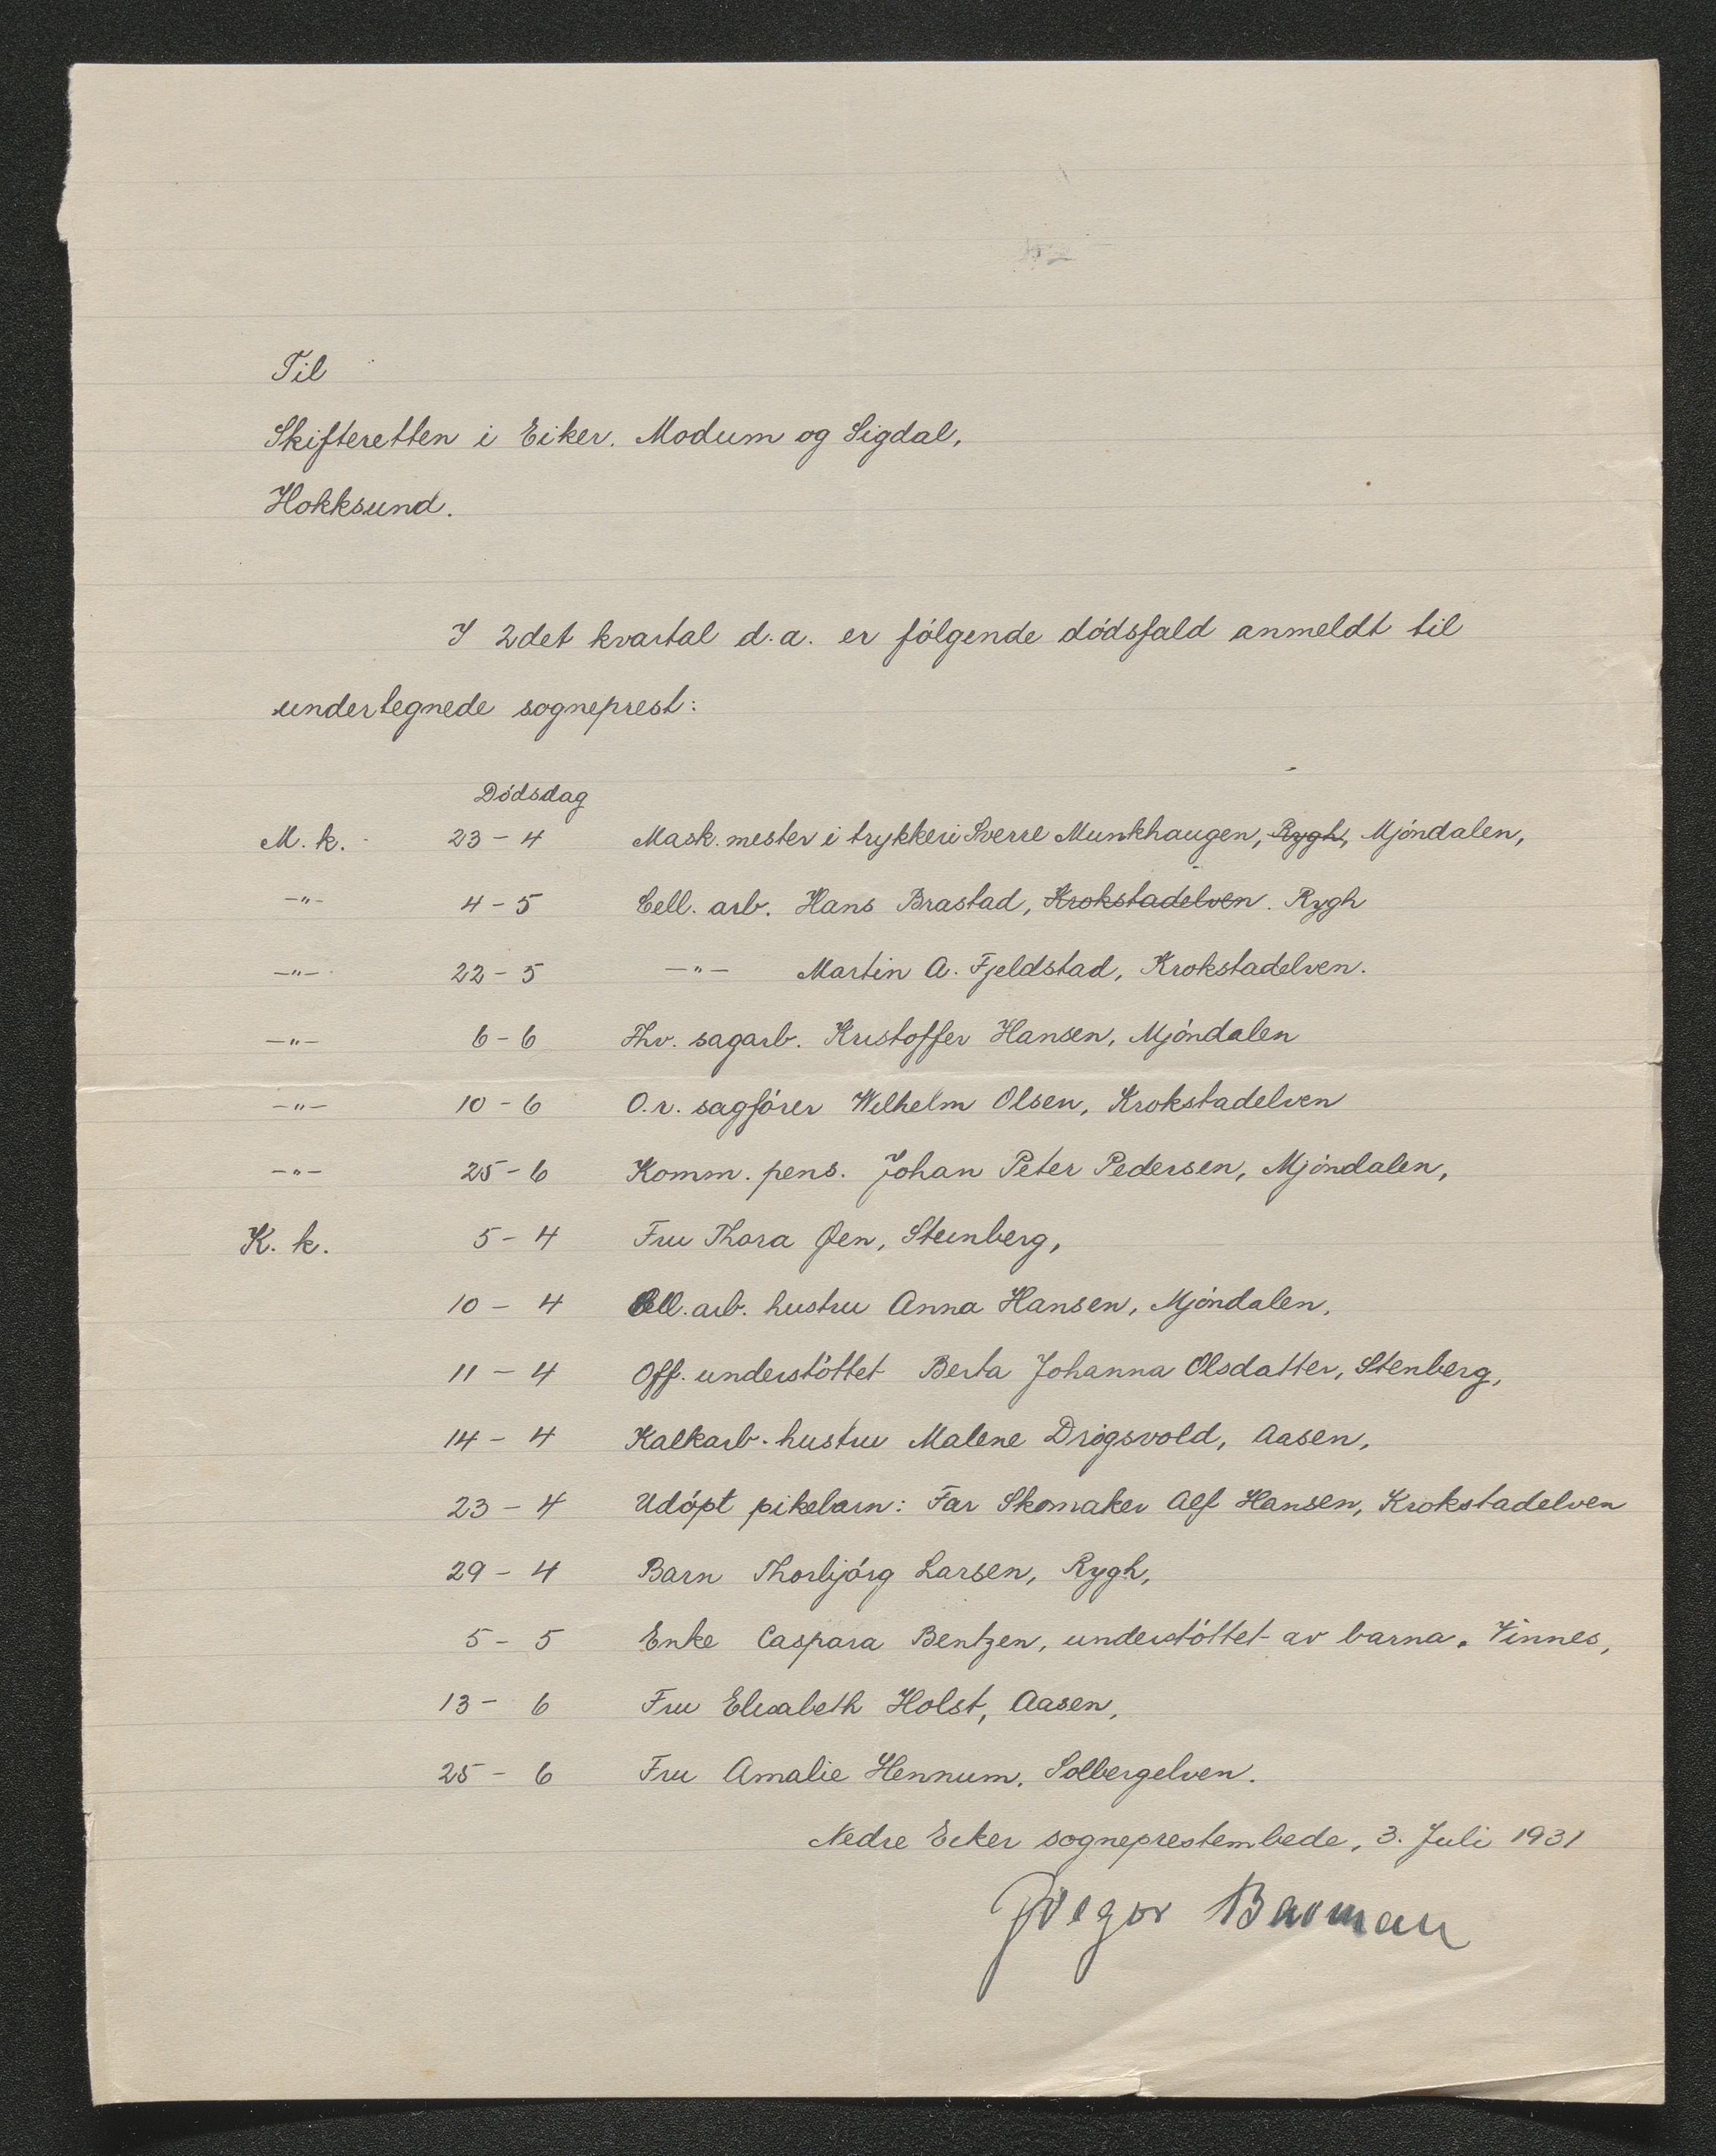 Til
Skifteretten i Eiker, Modum og Sigdal,
Hokksund.
I 2det kvartal d.a. er følgende dødsfald anmeldt til
undertegnede sogneprest:
Dødsdag
M. k. 23 - 4 Mask. mester i trykkeri Sverre Munkhaugen, Rygh, Mjøndalen,
-"- 4 - 5 Cell. arb. Hans Brastad, Krokstadelven. Rygh
-"- 22 - 5 -"- Martin A. Fjeldstad, Krokstadelven.
-"- 6 - 6 Fhv. sagarb. Kristoffer Hansen, Mjøndalen
-"- 10 - 6 O.r. sagfører Wilhelm Olsen, Krokstadelven
-"- 25 - 6 Komm. pens. Johan Peter Pedersen, Mjøndalen,
K. k. 5 - 4 Fru Thora Øen, Steinberg,
10 - 4 Cell. arb. hustru Anna Hansen, Mjøndalen,
11 - 4 Off. understøttet Berta Johanna Olsdatter, Stenberg,
14 - 4 Kalkarb. hustru Malene Drøgsvold, Aasen,
23 - 4 Udøpt pikebarn: Far Skomaker Alf Hansen, Krokstadelven
29 - 4 Barn Thorbjørg Larsen, Rygh,
5 - 5 Enke Caspara Bentzen, understøttet av barna. Vinnes,
13 - 6 Fru Elisabeth Holst, Aasen,
25 - 6 Fru Amalie Hennum, Solbergelven.
Nedre Eiker sogneprestembede, 3. Juli 1931